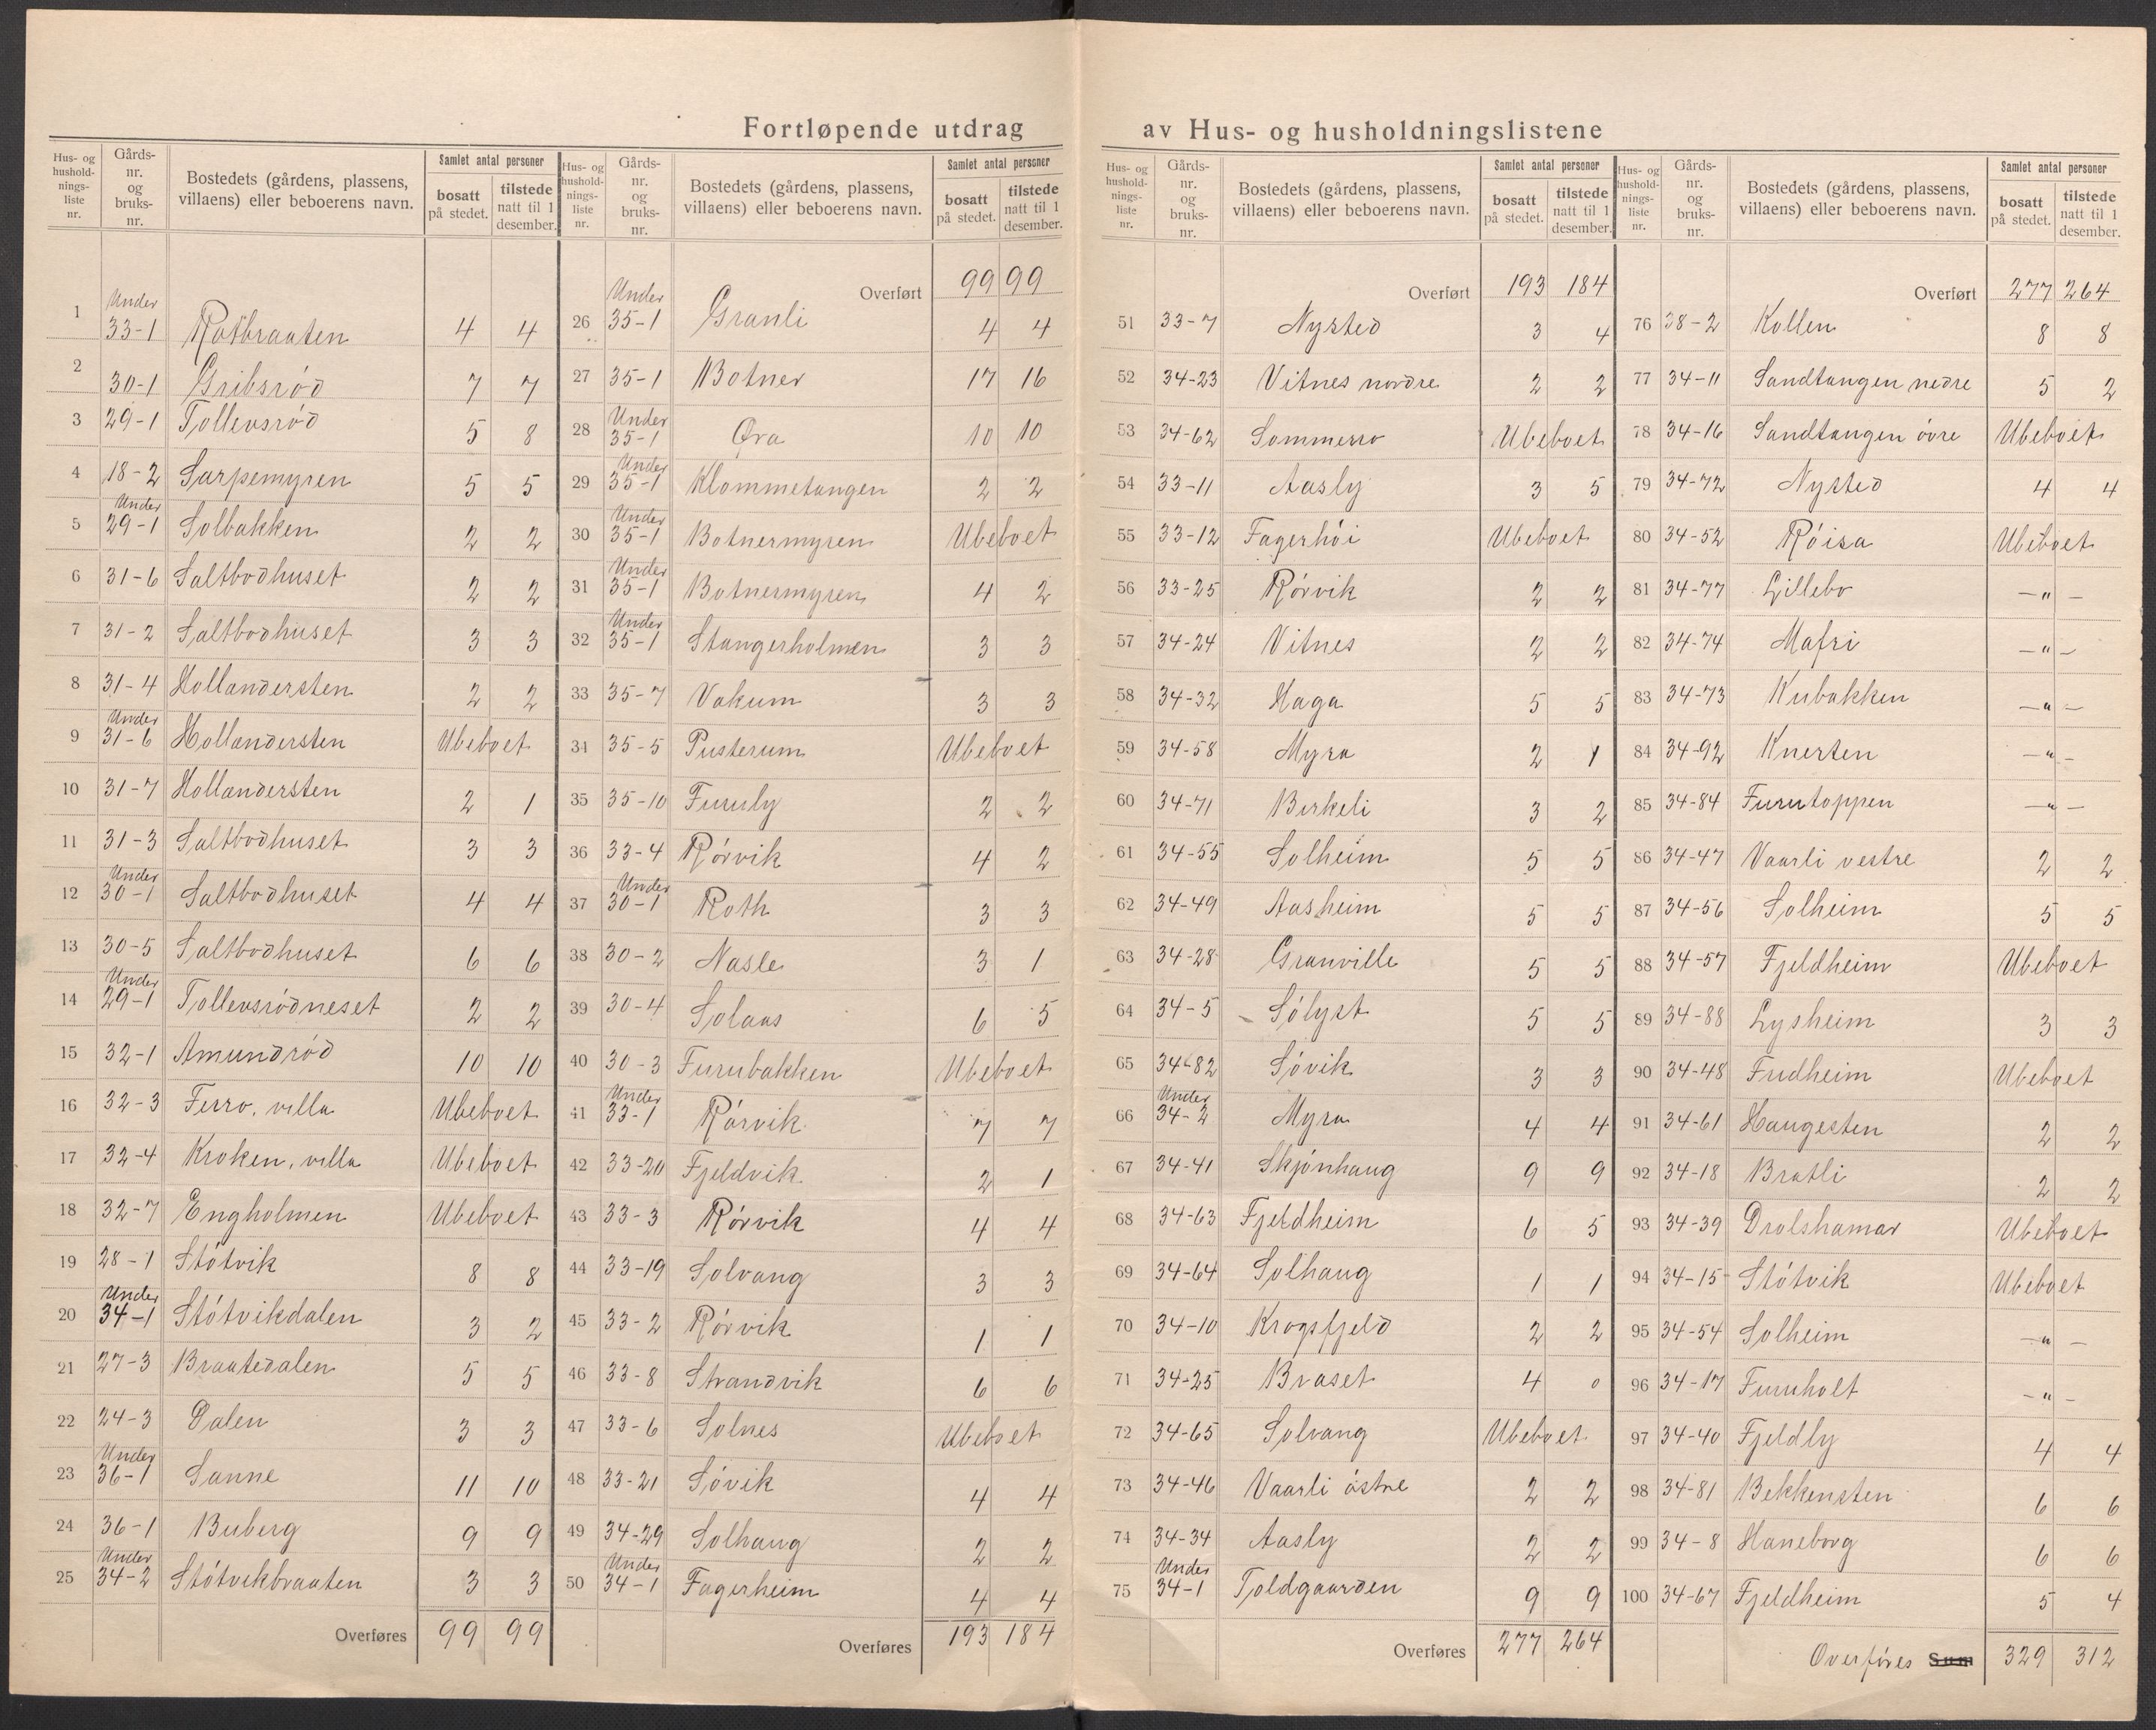 Fortløpende utdrag av Hus- og husholdningslistene
Hus- og hushold-nings-liste nr. | Gårds-nr. og bruks-nr. | Bostedets (gårdens, plassens, villaens) eller beboerens navn. | Samlet antal personer | bosatt på stedet. | tilstede natt til 1 desember.
1 Under 33-1 Rotbraaten 4 4
2 30-1 Gribsrød 7 7
3 29-1 Tollevsrød 5 8
4 18-2 Sarpemyren 5 5
5 Under 29-1 Solbakken 2 2
6 31-6 Saltbodhuset 2 2
7 31-2 Saltbodhuset 3 3
8 31-4 Hollendersten 2 2
9 Under 31-6 Hollandersten Ubeboet
10 31-7 Hollandersten 2 1
11 31-3 Saltbodhuset 3 3
12 Under 30-1 Saltbodhuset 4 4
13 30-5 Saltbodhuset 6 6
14 Under 29-1 Tollevsrødneset 2 2
15 32-1 Amundrød 10 10
16 32-3 Ferro, villa Ubeboet
17 32-4 Kroken, villa Ubeboet
18 32-7 Engholmen Ubeboet
19 28-1 Støtvik 8 8
20 Under 34-1 Støtvikdalen 3 2
21 27-3 Braatedalen 5 5
22 24-3 Dalen 3 3
23 Under 36-1 Sanne 11 10
24 36-1 Buberg 9 9
25 Under 34-2 Støtvikbraaten 3 3
Overføres 99 99
Hus- og hushold-nings-liste nr. | Gårds-nr. og bruks-nr. | Bostedets (gårdens, plassens, villaens) eller beboerens navn. | Samlet antal personer | bosatt på stedet. | tilstede natt til 1 desember.
Overført 99 99
26 Under 35-1 Granli 4 4
27 35-1 Botner 17 16
28 Under 35-1 Øra 10 10
29 Under 35-1 Klommetangen 2 2
30 Under 35-1 Botnermyren Ubeboet
31 Under 35-1 Botnermyren 4 2
32 Under 35-1 Stangerholmen 3 3
33 35-7 Vakum 3 3
34 35-5 Pusterum Ubeboet
35 35-10 Furuly 2 2
36 33-4 Rørvik 4 2
37 Under 30-1 Roth 3 3
38 30-2 Nasle 3 1
39 30-4 Solaas 6 5
40 30-3 Furubakken Ubeboet
41 Under 33-1 Rørvik 7 7
42 33-20 Fjeldvik 2 1
43 33-3 Rørvik 4 4
44 33-19 Solvang 3 3
45 33-2 Rørvik 1 1
46 33-8 Strandvik 6 6
47 33-6 Solnes Ubeboet
48 33-21 Søvik 4 4
49 34-29 Solhaug 2 2
50 Under 34-1 Fagerheim 4 4
Overføres 193 184
Hus- og hushold-nings-liste nr. | Gårds-nr. og bruks-nr. | Bostedets (gårdens, plassens, villaens) eller beboerens navn. | Samlet antal personer | bosatt på stedet. | tilstede natt til 1 desember.
Overført 193 184
51 33-7 Nysted 3 4
52 34-23 Vitnes nordre 2 2
53 34-62 Sommerro Ubeboet
54 33-11 Aasly 3 5
55 33-12 Fagerhøi Ubeboet
56 33-25 Rørvik 2 2
57 34-24 Vitnes 2 2
58 34-32 Haga 5 5
59 34-58 Myra 2 1
60 34-71 Birkeli 3 2
61 34-55 Solheim 5 5
62 34-49 Aasheim 5 5
63 34-28 Granville 5 5
64 34-5 Sølyst 5 5
65 34-82 Søvik 3 3
66 Under 34-2 Myra 4 4
67 34-41 Skjønhaug 9 9
68 34-63 Fjeldheim 6 5
69 34-64 Solhaug 1 1
70 34-10 Krogsfjeld 2 2
71 34-25 Braset 4 0
72 34-65 Solvang Ubeboet
73 34-46 Vaarli østre 2 2
74 34-34 Aasly 2 2
75 Under 34-1 Toldgaarden 9 9
Overføres 277 264
Hus- og hushold-nings-liste nr. | Gårds-nr. og bruks-nr. | Bostedets (gårdens, plassens, villaens) eller beboerens navn. | Samlet antal personer | bosatt på stedet. | tilstede natt til 1 desember.
Overført 277 264
76 38-2 Kollen 8 8
77 34-11 Sandtangen nedre 5 2
78 34-16 Sandtangen øvre Ubeboet
79 34-72 Nysted 4 4
80 34-52 Røisa Ubeboet
81 34-77 Lillebo —"—
82 34-74 Mafri —"—
83 34-73 Kubakken —"—
84 34-92 Knerten —"—
85 34-84 Furutoppen —"—
86 34-47 Vaarli vestre 2 2
87 34-56 Solheim 5 5
88 34-57 Fjeldheim Ubeboet
89 34-88 Lysheim 3 3
90 34-48 Fredheim Ubeboet
91 34-61 Haugesten 2 2
92 34-18 Bratli 2 2
93 34-39 Drolshamar Ubeboet
94 34-15 Støtvik Ubeboet
95 34-54 Solheim —"—
96 34-17 Furuholt —"—
97 34-40 Fjeldly 4 4
98 34-81 Bekkensten 6 6
99 34-8 Haneborg 6 6
100 34-67 Fjeldheim 5 4
Overføres Sum 329 312